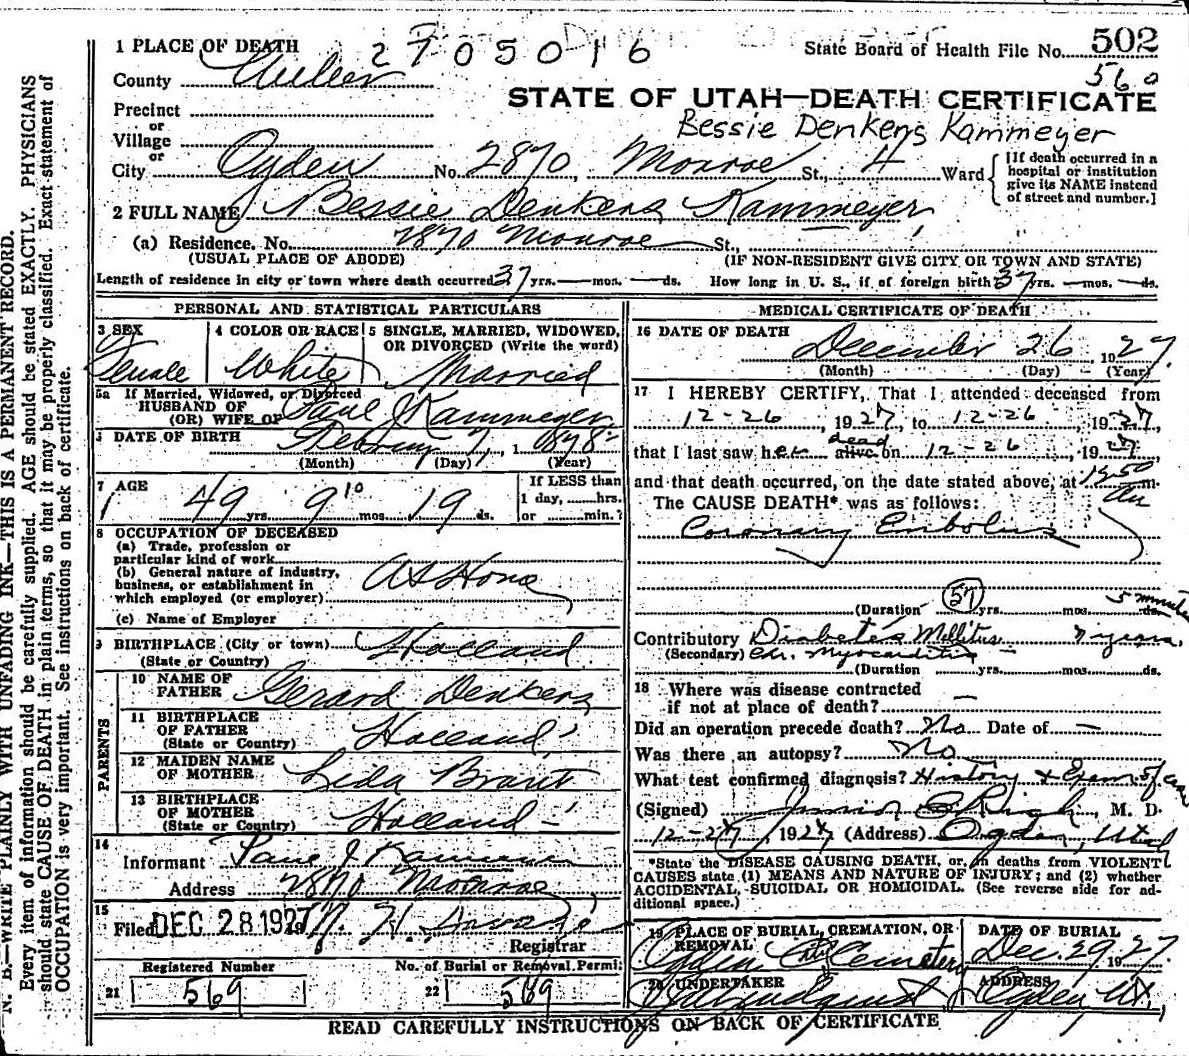 N. B.—WRITE PLAINLY WITH UNFADING INK—THIS IS A PERMANENT RECORD.
Every item of information should be carefully supplied. AGE should be stated EXACTLY. PHYSICIANS
should state CAUSE OF DEATH in plain terms, so that it may be properly classified. Exact statement of
OCCUPATION is very important. See instructions on back of certificate.
2705016
State Board of Health File No. 502
560
STATE OF UTAH—DEATH CERTIFICATE
Bessie Denkers Kammeyer
1 PLACE OF DEATH
County Weber
Precinct
or
Village
or
City Ogden No. 2870, Monroe St., 4 Ward
[If death occurred in a
hospital or institution
give its NAME instead
of street and number.]
2 FULL NAME Bessie Denkers Kammeyer
(a) Residence. No. 2870 Monroe St.,
(USUAL PLACE OF ABODE) (IF NON-RESIDENT GIVE CITY OR TOWN AND STATE)
Length of residence in city or town where death occurred 37 yrs. — mos. — ds. How long in U. S., if of foreign birth 37 yrs. — mos. — ds.
PERSONAL AND STATISTICAL PARTICULARS
3 SEX
Female
4 COLOR OR RACE
White
5 SINGLE, MARRIED, WIDOWED,
OR DIVORCED (Write the word)
Married
5a If Married, Widowed, or Divorced
HUSBAND OF
(OR) WIFE OF Kammeyer
DATE OF BIRTH 7, 1878
(Month) (Day) (Year)
7 AGE
49 yrs. 9 10 mos. 19 ds.
If LESS than
1 day, hrs.
or min.?
8 OCCUPATION OF DECEASED
(a) Trade, profession or
particular kind of work
(b) General nature of industry,
business, or establishment in
which employed (or employer)
At Home
(c) Name of Employer
9 BIRTHPLACE (City or town)
(State or Country)
Holland
PARENTS
10 NAME OF
FATHER Gerard Denkers
11 BIRTHPLACE
OF FATHER
(State or Country)
Holland
12 MAIDEN NAME
OF MOTHER Lida Brant
13 BIRTHPLACE
OF MOTHER
(State or Country)
Holland
14
Informant
Address 2870 Monroe
15
Filed DEC 28 1927
Registrar
Registered Number
21 569
No. of Burial or Removal Permit
22 569
MEDICAL CERTIFICATE OF DEATH
16 DATE OF DEATH
December 26, 1927
(Month) (Day) (Year)
17 I HEREBY CERTIFY, That I attended deceased from
12-26, 1927, to 12-26, 1927,
that I last saw her alive dead on 12-26, 1927,
and that death occurred, on the date stated above, at m.
The CAUSE DEATH* was as follows:
Coronary Embolus
(Duration 57 yrs. mos. 5 minutes ds.
Contributory Diabetes Mellitus years
(Secondary) Chr. Myocarditis
(Duration yrs. mos. ds.
18 Where was disease contracted
if not at place of death? —
Did an operation precede death? No Date of —
Was there an autopsy? No
What test confirmed diagnosis? History & Exam of case
(Signed) Junior E Rich, M. D.
12-27, 1927, (Address) Ogden, Utah
*State the DISEASE CAUSING DEATH, or, in deaths from VIOLENT
CAUSES state (1) MEANS AND NATURE OF INJURY; and (2) whether
ACCIDENTAL, SUICIDAL OR HOMICIDAL. (See reverse side for ad-
ditional space.)
19 PLACE OF BURIAL, CREMATION, OR
REMOVAL
Ogden City Cemetery
DATE OF BURIAL
Dec. 29 1927
20 UNDERTAKER
ADDRESS
Ogden, Ut,
READ CAREFULLY INSTRUCTIONS ON BACK OF CERTIFICATE